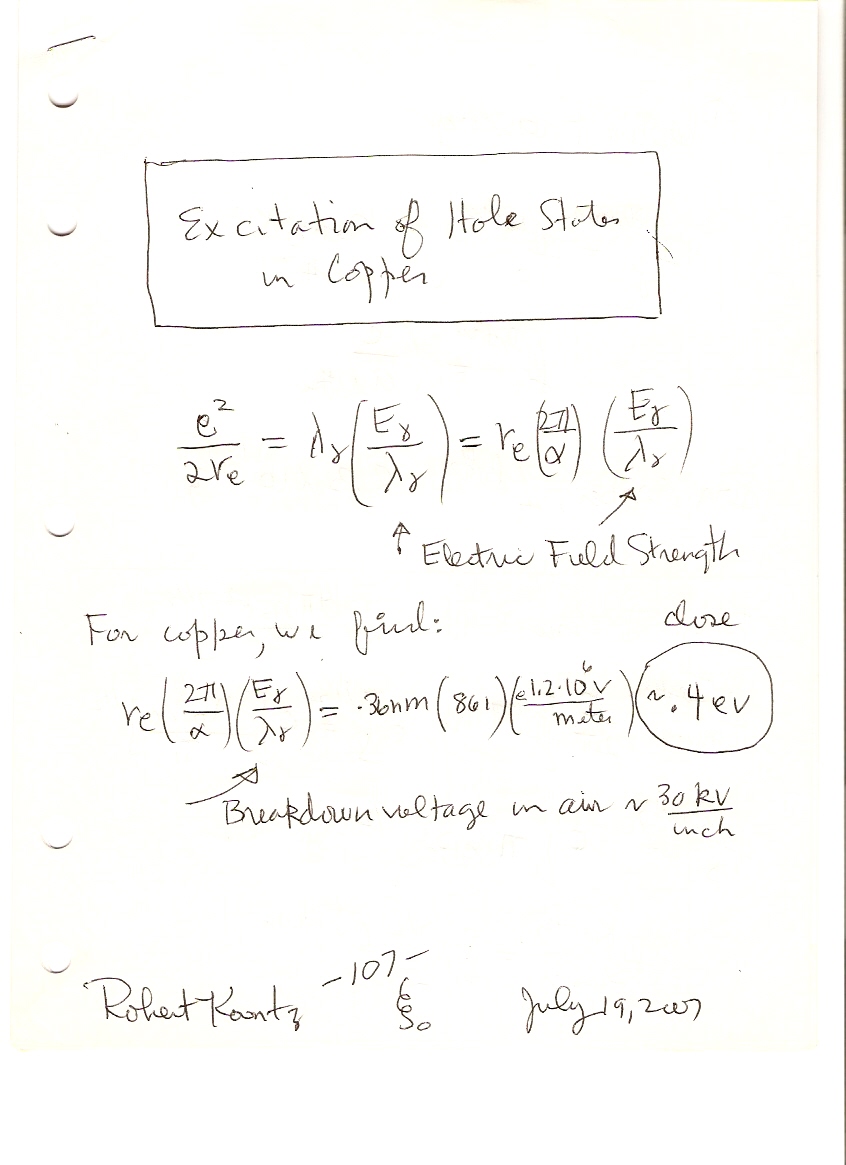 Excitation of Hole States
in Copper
e²/2re = λγ(Eγ/λγ) = re(2π/α)(Eγ/λγ)
↑ Electric Field Strength
For copper, we find:
close
re(2π/α)(Eγ/λγ) = .36nm(861)(e1.2·10⁶V/meter) ~.4ev
Breakdown voltage in air ~ 30 kV/inch
-107-
Robert Koontz
July 19, 2007